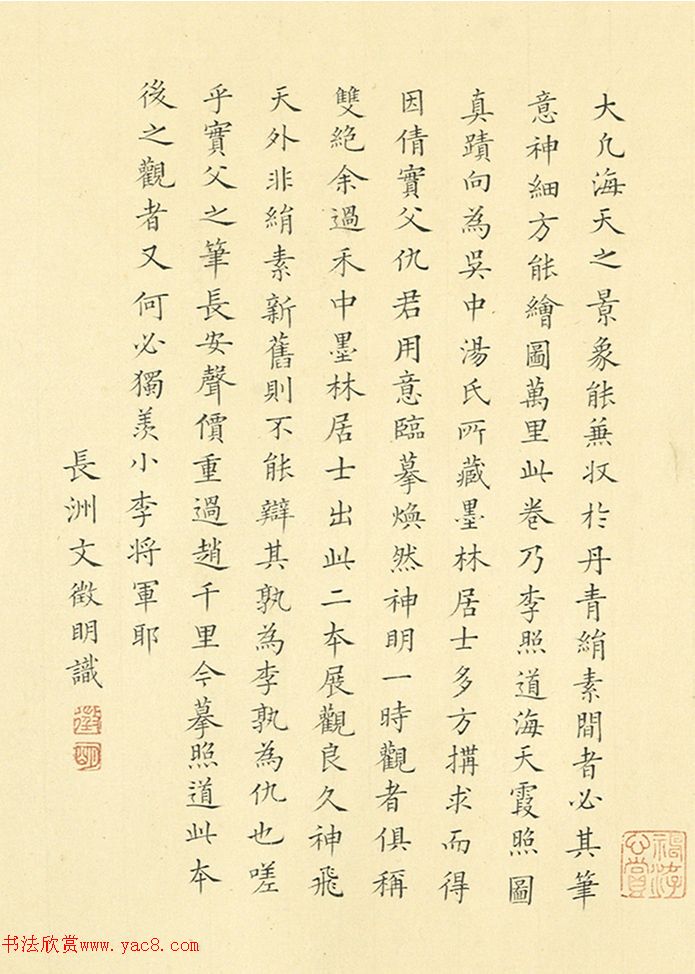 大凡海天之景象能兼收於丹青絹素間者必其筆
意神細方能繪圖萬里此卷乃李照道海天霞照圖
真蹟向為吳中湯氏所藏墨林居士多方搆求而得
因倩實父仇君用意臨摹煥然神明一時觀者俱稱
雙絕余過禾中墨林居士出此二本展觀良久神飛
天外非絹素新舊則不能辯其孰為李孰為仇也嗟
乎實父之筆長安聲價重過趙千里今摹照道此本
後之觀者又何必獨羨小李將軍耶
長洲文徵明識
徵
明
書法欣赏www.yac8.com